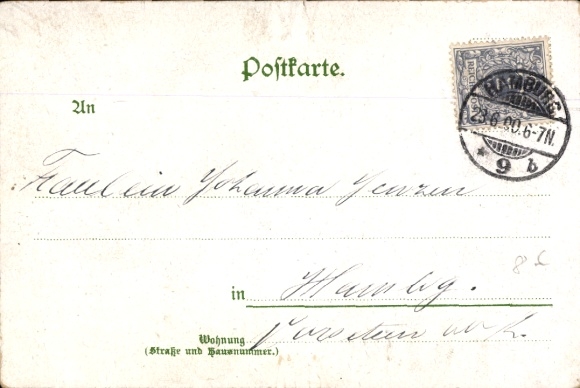 Postkarte.
HAMBURG
23.6.00.6-7N.
* 9 b
An
Fräulein Johanna Jenzen
in Hambg.
Wohnung
(Straße und Hausnummer.)